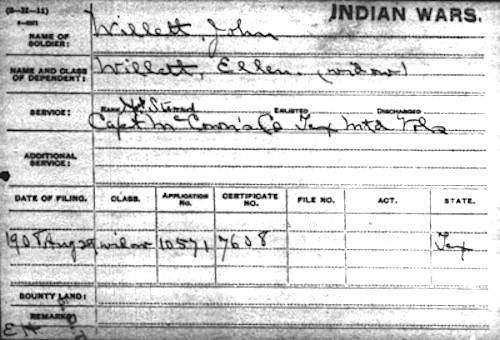 (3-31-11)
INDIAN WARS.
NAME OF SOLDIER: Willett, John
NAME AND CLASS OF DEPENDENT: Willett, Ellen, (widow)
SERVICE: RANK Not Stated ENLISTED DISCHARGED
Capt McCown's Co Tex Mtd Vols
ADDITIONAL SERVICE:
DATE OF FILING. CLASS. APPLICATION No. CERTIFICATE NO. FILE NO. ACT. STATE.
1908 Aug widow 10571 7608 Tex
BOUNTY LAND:
REMARKS:
EH